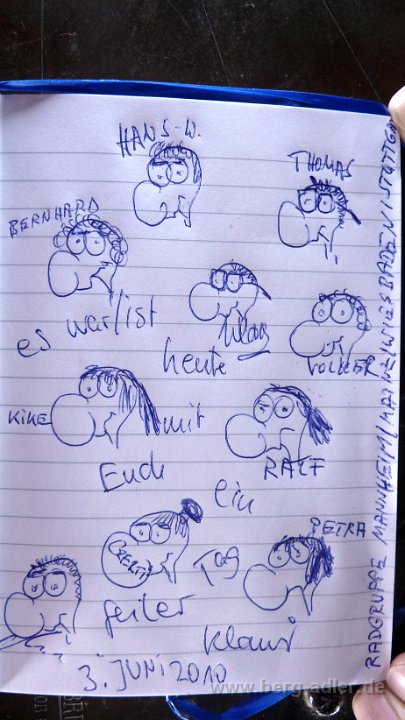 HANS-W.
THOMAS
BERNHARD
es war/ist
heute
VOLKER
KIKE
mit
RALF
Euch
ein
PETRA
Tag
geiler
Klausi
3. JUNI 2010
RADGRUPPE MANNHEIM/MAINZ/WIESBADEN/STUTTGART
www.berg-adler.de